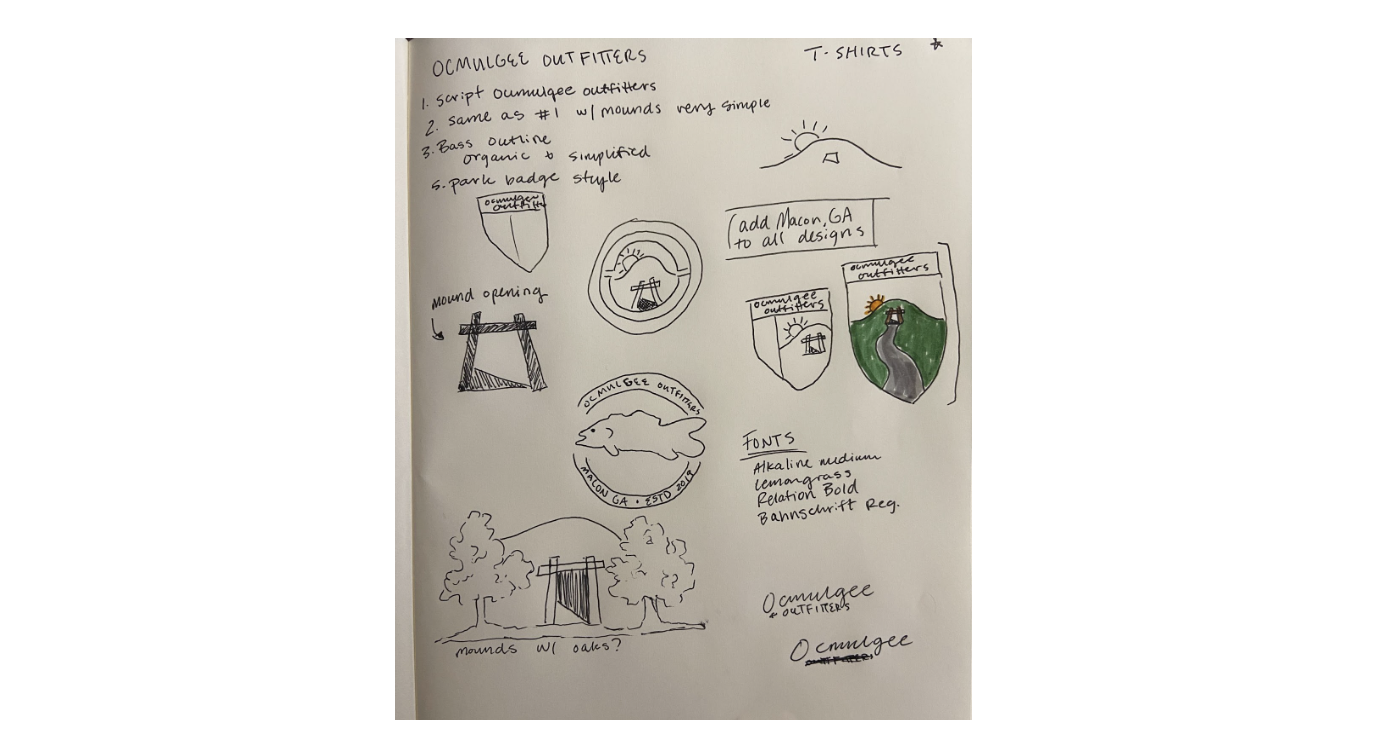 OCMULGEE OUTFITTERS
T-SHIRTS
1. script Ocumulgee outfitters
2. same as #1 w/ mounds very simple
3. Bass outline
organic & simplified
5. park badge style
ocmulgee
outfitt
add Macon, GA
to all designs
mound opening
ocmulgee
outfitters
ocmulgee
outfitters
OCMULGEE OUTFITTERS
MACON GA • ESTD 2019
FONTS
Alkaline medium
Lemongrass
Relation Bold
Bahnschrift Reg.
mounds w/ oaks?
Ocmulgee
OUTFITTERS
Ocmulgee